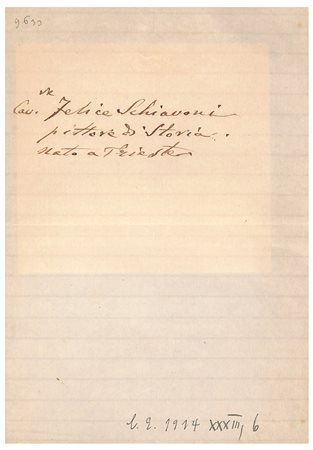 9630
Cav. Felice Schiavoni
pittore di Storia.
Nato a Trieste
C. E. 1914 XXXIII, 6